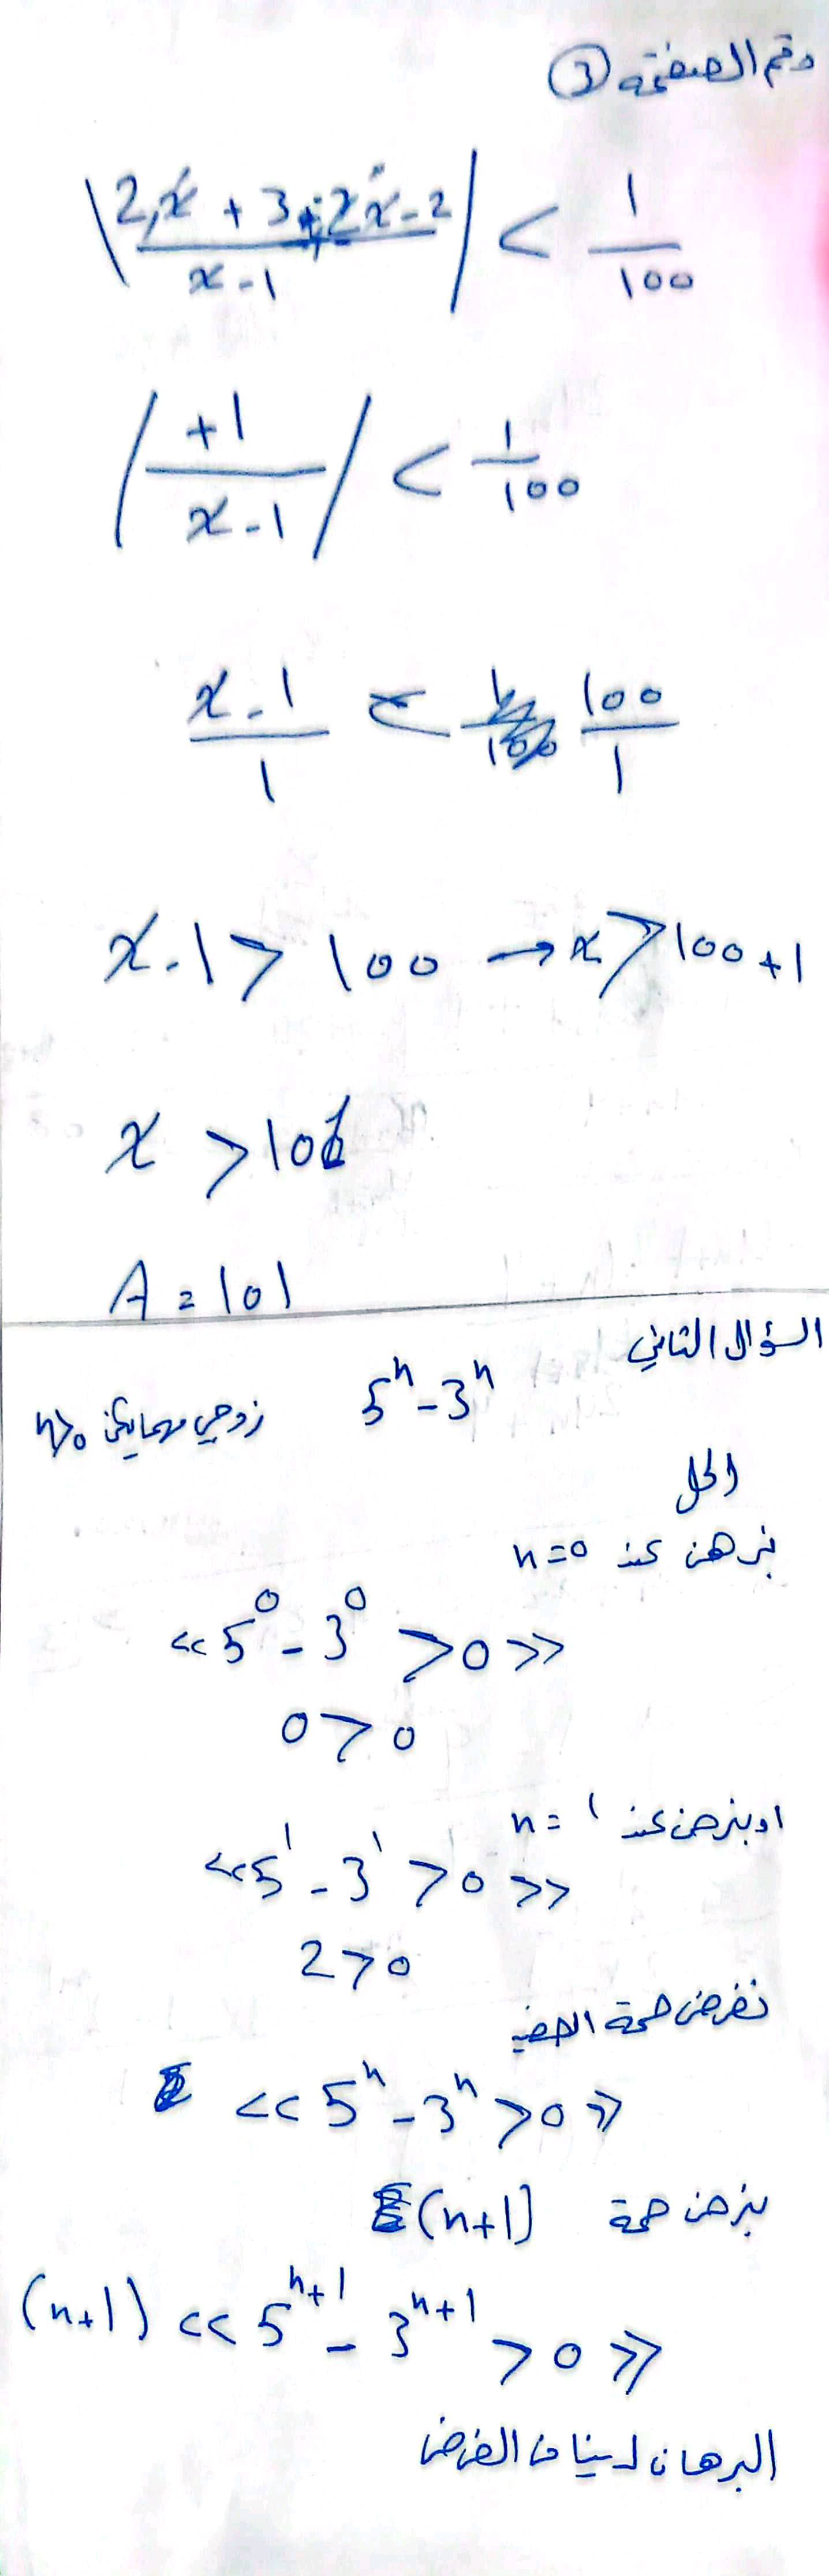 رقم الصفحة ③
|2x + 3 - 2x - 2 / x - 1| < 1/100
|+1 / x - 1| < 1/100
x - 1 / 1 < 100 / 1
x - 1 > 100 → x > 100 + 1
x > 101
A = 101
السؤال الثاني
5ⁿ - 3ⁿ زوجي مهما يكن n>0
الحل
نبرهن عند n=0
<< 5⁰ - 3⁰ > 0 >>
0 > 0
او نبرهن عند n = 1
<< 5¹ - 3¹ > 0 >>
2 > 0
نفرض صحة
<< 5ⁿ - 3ⁿ > 0 >>
نبرهن صحة (n+1)
(n+1) << 5ⁿ⁺¹ - 3ⁿ⁺¹ > 0 >>
البرهان لدينا من الفرض